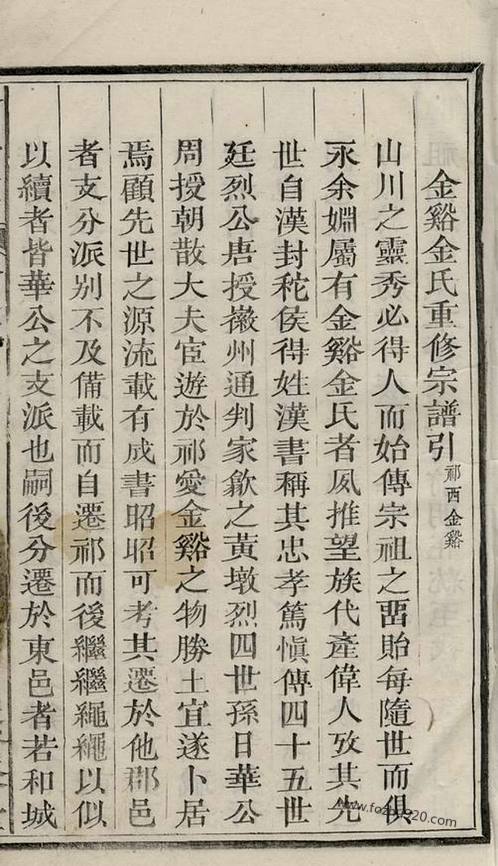 金谿金氏重修宗譜引 祁西金谿
山川之靈秀必得人而始傳宗祖之畱貽每隨世而俱
永余婣屬有金谿金氏者夙推望族代產偉人攷其先
世自漢封秺侯得姓漢書稱其忠孝篤愼傳四十五世
廷烈公唐授徽州通判家歙之黃墩烈四世孫日華公
周授朝散大夫宦遊於祁愛金谿之物勝土宜遂卜居
焉顧先世之源流載有成書昭昭可考其遷於他郡邑
者支分派别不及備載而自遷祁而後繼繼繩繩以似
以續者皆華公之支派也嗣後分遷於東邑者若和城